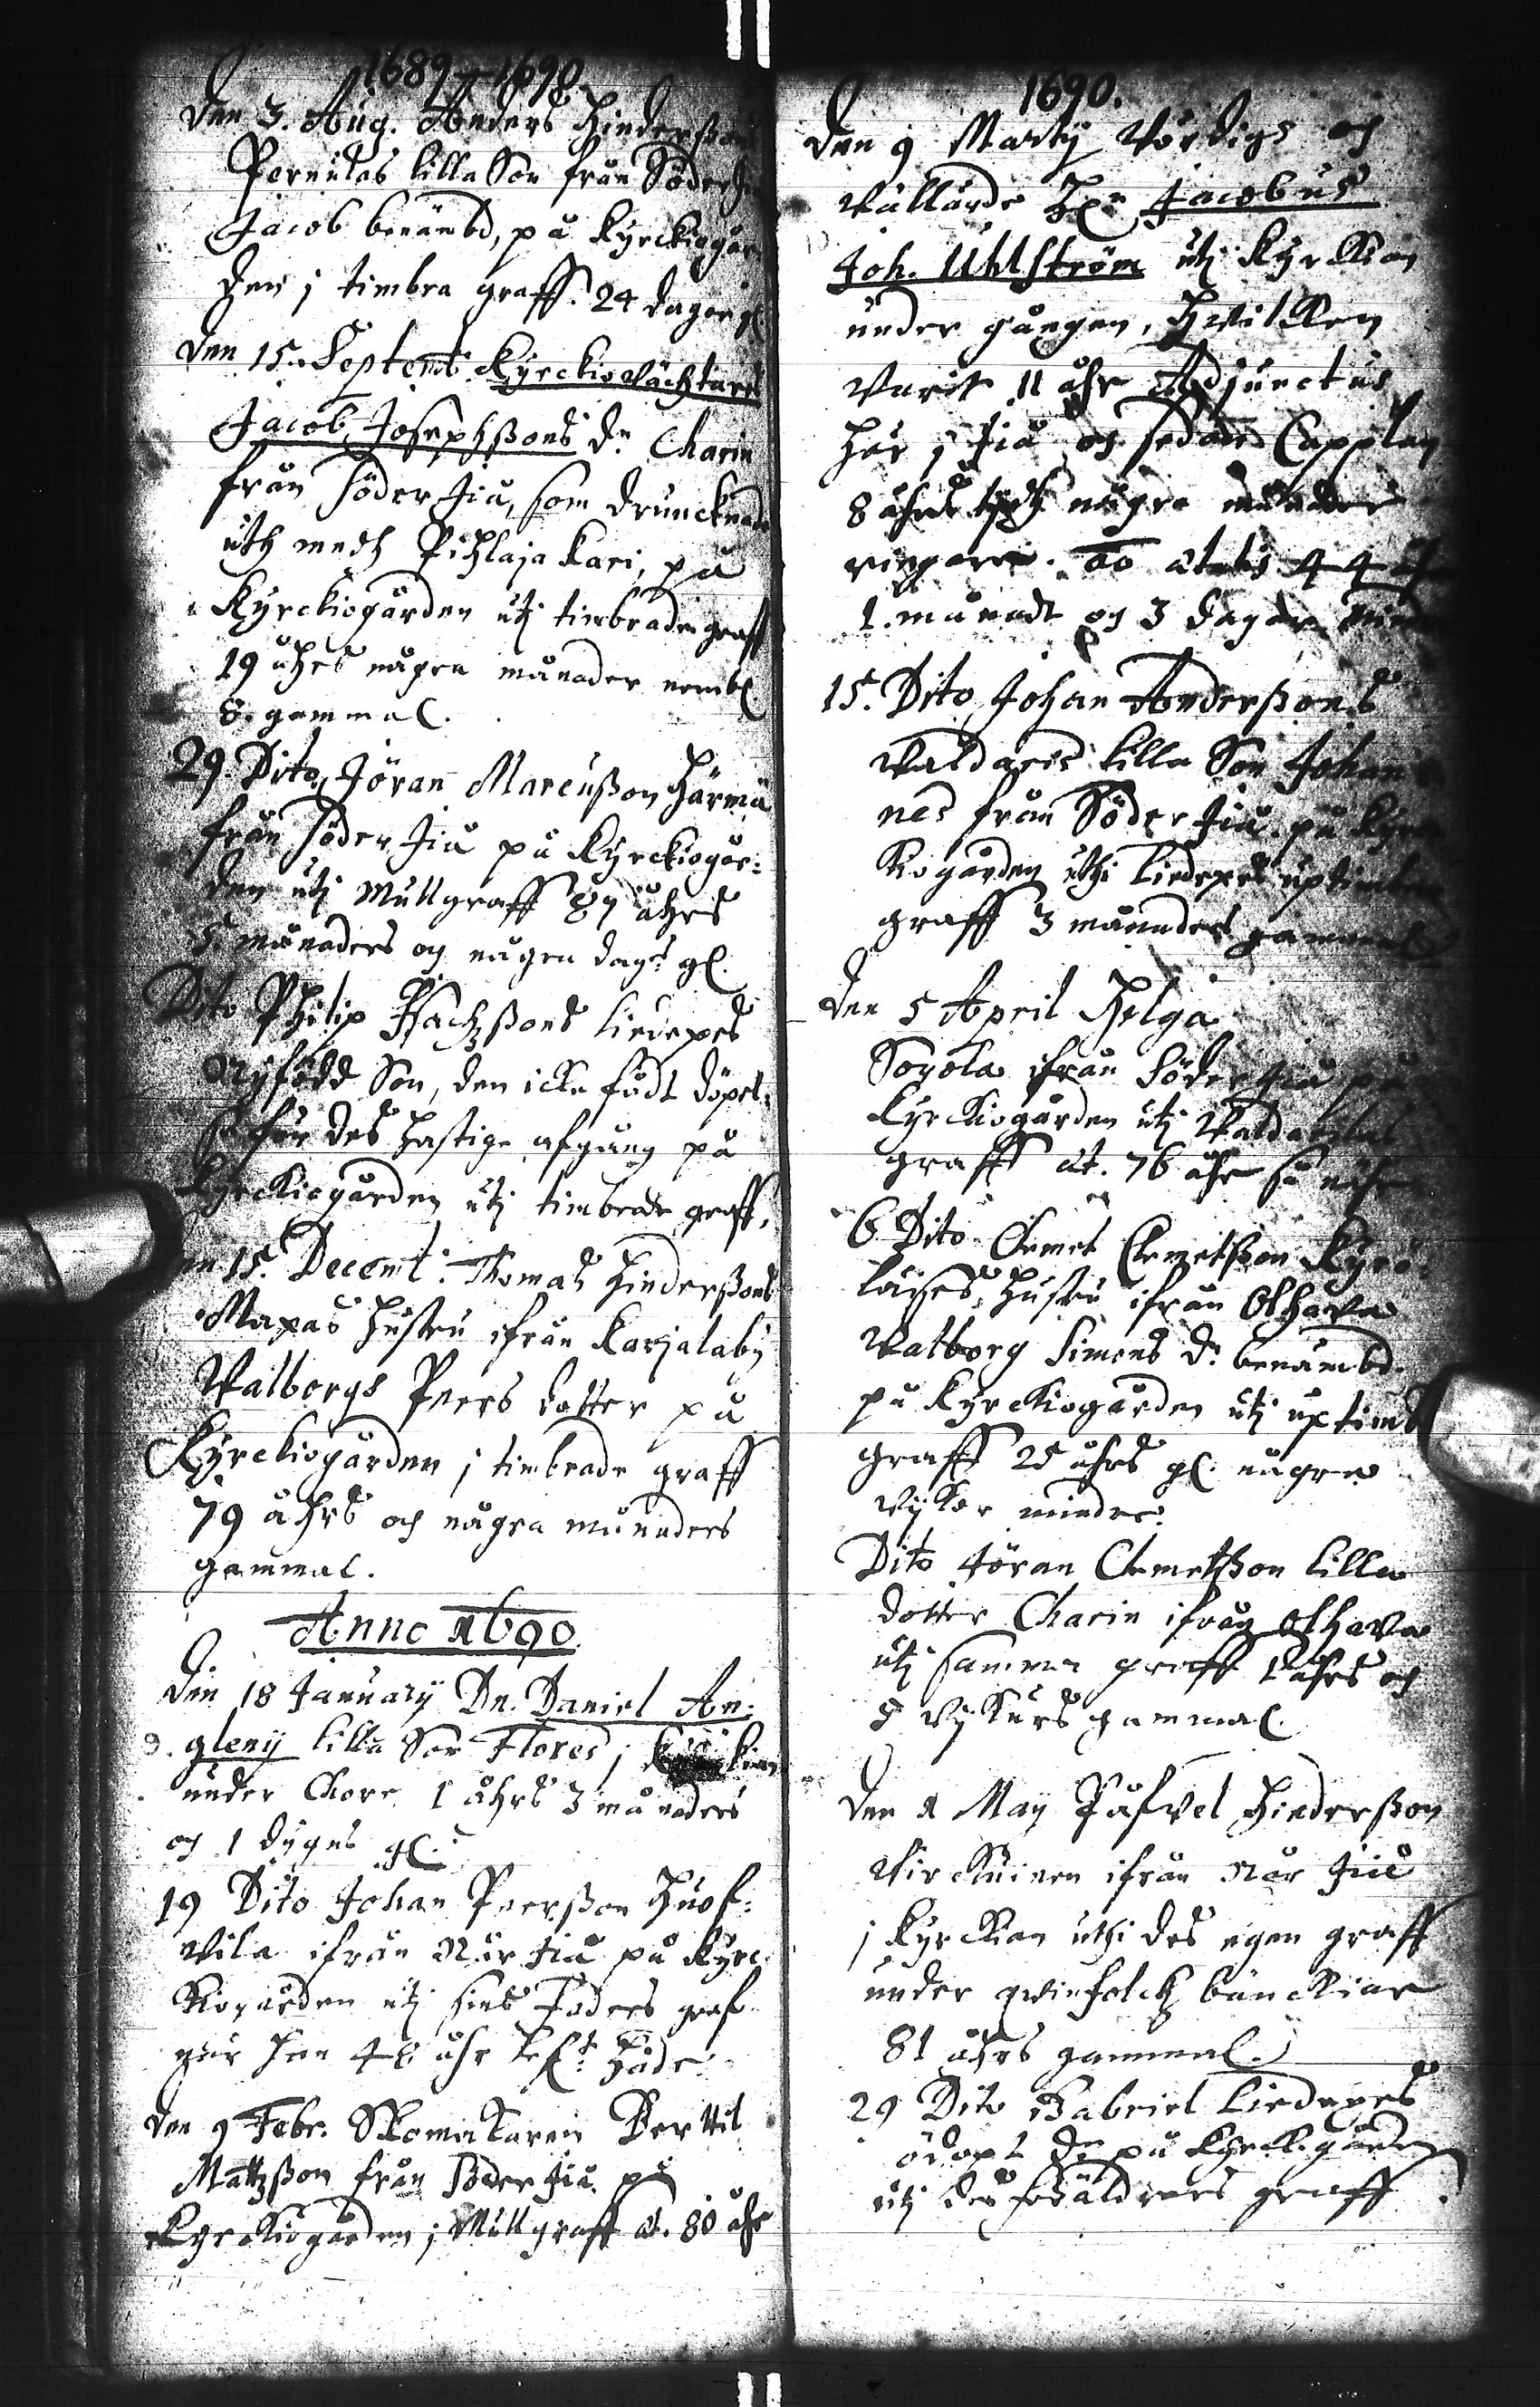 1689-1690.
Den 3. Aug. Anders Hinderßon
Pernulas lilla Son från Söder
Jacob benämbd, på Kyrckiogår
den j timbra graff. 24 dagar gl.
Den 15. Septemb. Kyrckiowächtare
Jacob Josephßons Dr. Charin
från Söder Jiå, som drunknade
uth medh Pihlaja kari, på
Kyrckiogården utj timbrade graff
19 åhrs några månader nembl.
8. gammal.
29. Dito, Jöran Marcußon Härmä
från Söder Jiå på Kyrckiogår:
den utj Mullgraff 87 åhrs
5. månaders och några dagr gl.
Dito Philip Isachßons Liedepes
Nyfödd Son, den icke fådt döpel:
se för des hastige afgång på
Kyrckiogården utj timbrade graff.
en 15. Decemb: Thomas Hinderßons
Mapas hustru ifrån Karjalaby
Walborgs Peers dotter på
Kyrckiogården j timbrade graff
79 åhrs och några månaders
gammal.
Anno 1690
Den 18 Januarij Dn. Daniel An:
glenij lilla Son Flores j Kyrckian
under Chore 1 åhrs 3 månaders
och 1 dygns gl:
19 Dito Johan Peerßon Huof:
wila ifrån Når Jiå på Kyrc
kiogården utj sins Faders graf
når han 48 åhr lefft hade.
Den 9 Febr. Skomakaren Bertil
Mattzßon från Söder Jiå på
Kyrckiogården j Mullgraff æt. 80 åhr
1690.
Den 9 Martij Wördige och
Wällärde Hr Jacobus
Joh. Uhlström utj Kyrckian
under gången, hwilken
warit 11 åhr Adjunctus
här j Jiå och sedan Capplan
8 åhrs tijdh några månader
ringare. ao ætatis 44 åhr
1. månadt och 3 dagar mindre
15. Dito Johan Anderßons
Waldaris lilla Son Johan
nes från Söder Jiå på Kyrc
kiogården uthi Liedepes uptimbra
graff 3 månaders gammal
Den 5 April Helga
Soyola ifrån Söder Jiå på
Kyrckiogården utj
graff æt. 76 åhr så når
6 Dito Clemet Clemetßon Kyrö:
läises hustru ifrån Olhava
Walborg Simons Dr. benämbd
på Kyrckiogården utj uptimb
graff 25 åhrs gl. några
wijkor mindre.
Dito Jöran Clemetßon lilla
dotter Charin ifrån Olhava
utj samma graff 1 åhrs och
5 wijkurs gammal.
Den 1 May Påfvel Hinderßon
Wirckuinen ifrån Når Jiå
j Kyrckian uthi des egen graff
under qwinfolck bänckiar
81 åhrs gammal.
29 Dito Gabriel Liedepes
ödöpt Dr. på Kyrckgården
utj des föräldrars graff